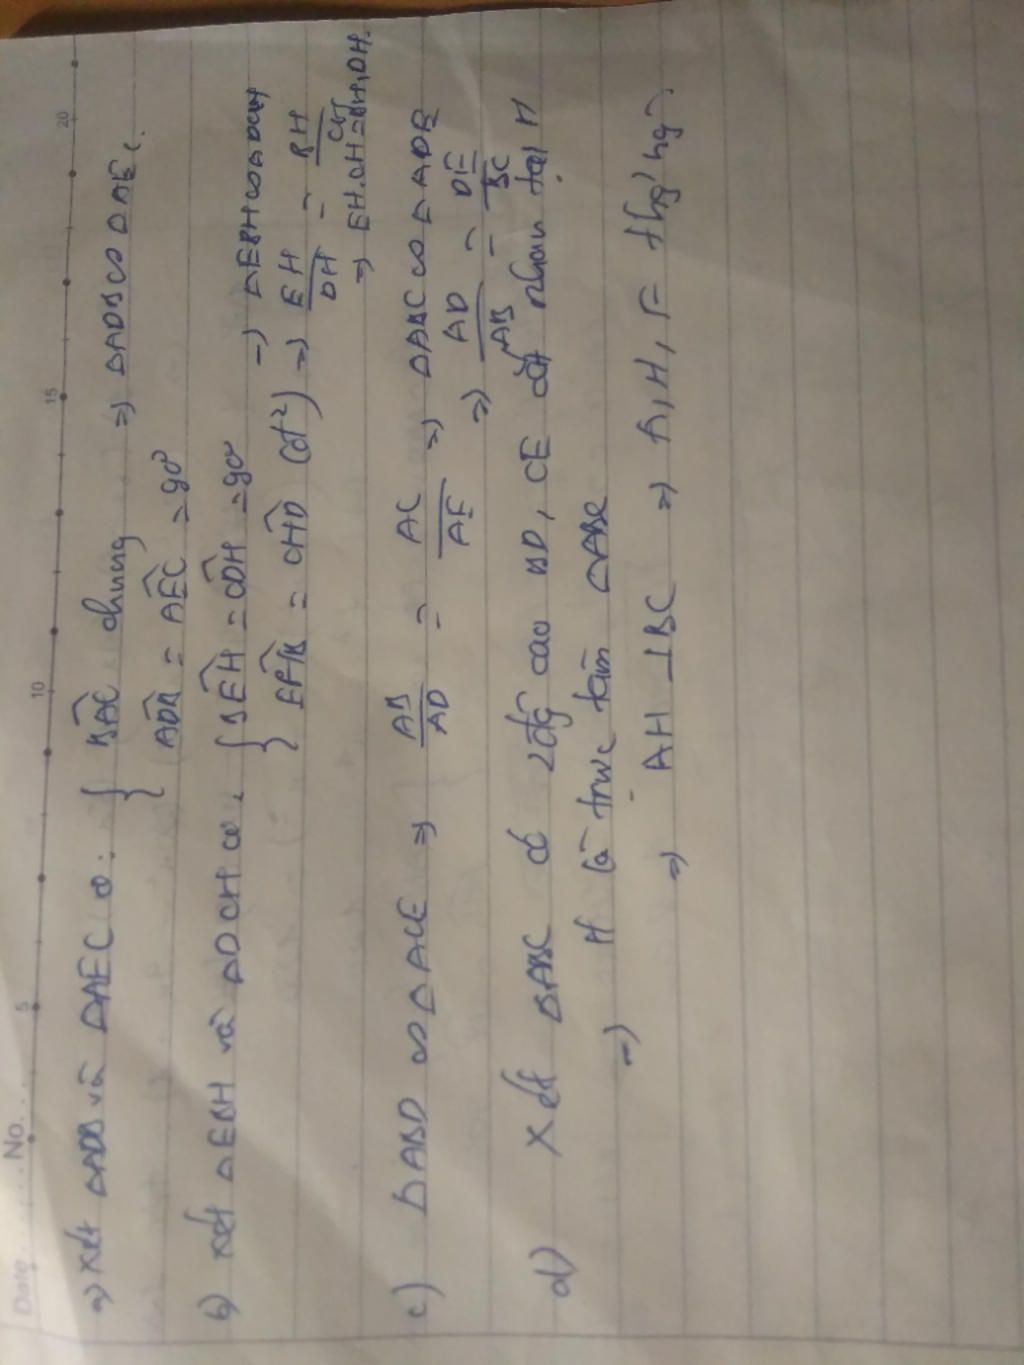 Date ....... No. ....
5 10 15 20
a) Xét ΔADB và ΔAEC có: { BAC^ chung ⇒ ΔADB ∽ ΔAEC.
ADB^ = AEC^ = 90°
b) Xét ΔEBH và ΔDCH có: { BEH^ = CDH^ = 90° ⇒ ΔEBH ∽ ΔDCH
EHB^ = CHD^ (đđ) ⇒ EH/DH = BH/CH
⇒ EH.CH = BH.DH.
c) ΔABD ∽ ΔACE ⇒ AB/AD = AC/AE ⇒ ΔABC ∽ ΔADE
⇒ AD/AB = DE/BC
d) Xét ΔABC có 2 đg cao BD, CE cắt nhau tại H
⇒ H là trực tâm ΔABC
⇒ AH ⊥ BC ⇒ A, H, F thg' hg`.